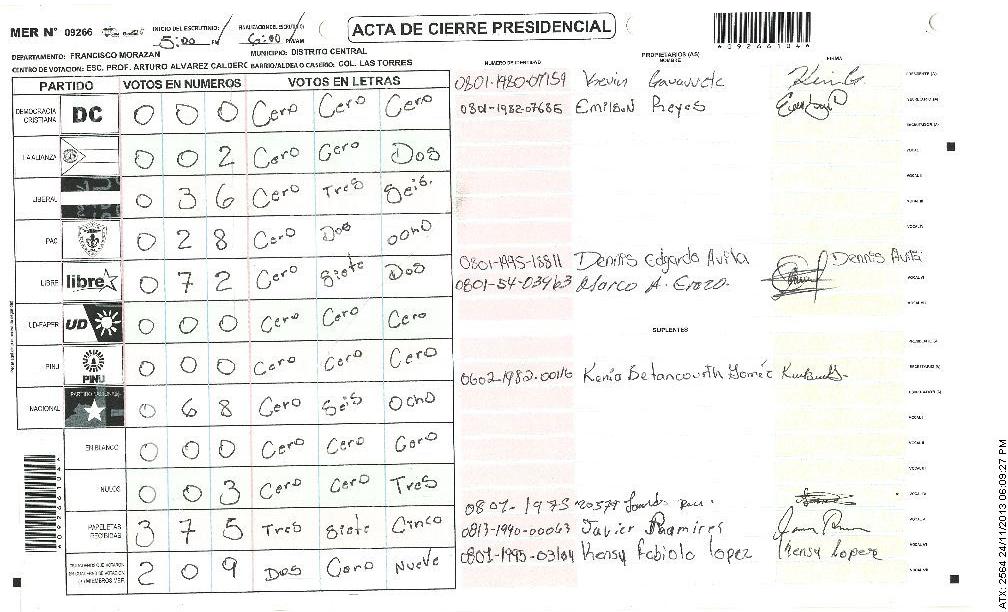 MER N° 09266
INICIO DEL ESCRUTINIO: 5:00 PM
FINALIZACION DEL ESCRUTINIO 6:00 PM/AM
ACTA DE CIERRE PRESIDENCIAL
4092661044
DEPARTAMENTO: FRANCISCO MORAZAN MUNICIPIO: DISTRITO CENTRAL
CENTRO DE VOTACION: ESC. PROF. ARTURO ALVAREZ CALDERC BARRIO/ALDEA O CASERIO: COL. LAS TORRES
PARTIDO VOTOS EN NUMEROS VOTOS EN LETRAS
DEMOCRACIA CRISTIANA DC 0 0 0 Cero Cero Cero
LA ALIANZA 0 0 2 Cero Cero Dos
LIBERAL 0 3 6 Cero Tres Seis.
PAC 0 2 8 Cero Dos ocho
LIBRE libre 0 7 2 Cero Siete Dos
UD-FAPER UD 0 0 0 Cero Cero Cero
PINU PINU 0 0 0 Cero Cero Cero
NACIONAL 0 6 8 Cero Seis Ocho
EN BLANCO 0 0 0 Cero Cero Cero
NULOS 0 0 3 Cero Cero Tres
PAPELETAS RECIBIDAS 3 7 5 Tres Siete Cinco
2 0 9 Dos Cero Nueve
NUMERO DE IDENTIDAD PROPIETARIOS (AS) NOMBRE FIRMA
0801-1980-07159 Kevin
0801-1982-07685 Emilson Reyes
0801-1995-18811 Dennis Edgardo Avila Dennis Avila
0801-54-03963 Marco A. Erazo.
SUPLENTES
0602-1982-00116 Kenia Betancourth Gomez
0801-1973-20579 Lourdes
0813-1990-00063 Javier Ramires
0801-1995-03104 Kensy Fabiola Lopez Kensy Lopez
4092661044
ATX: 2564 24/11/2013 06:09:27 PM